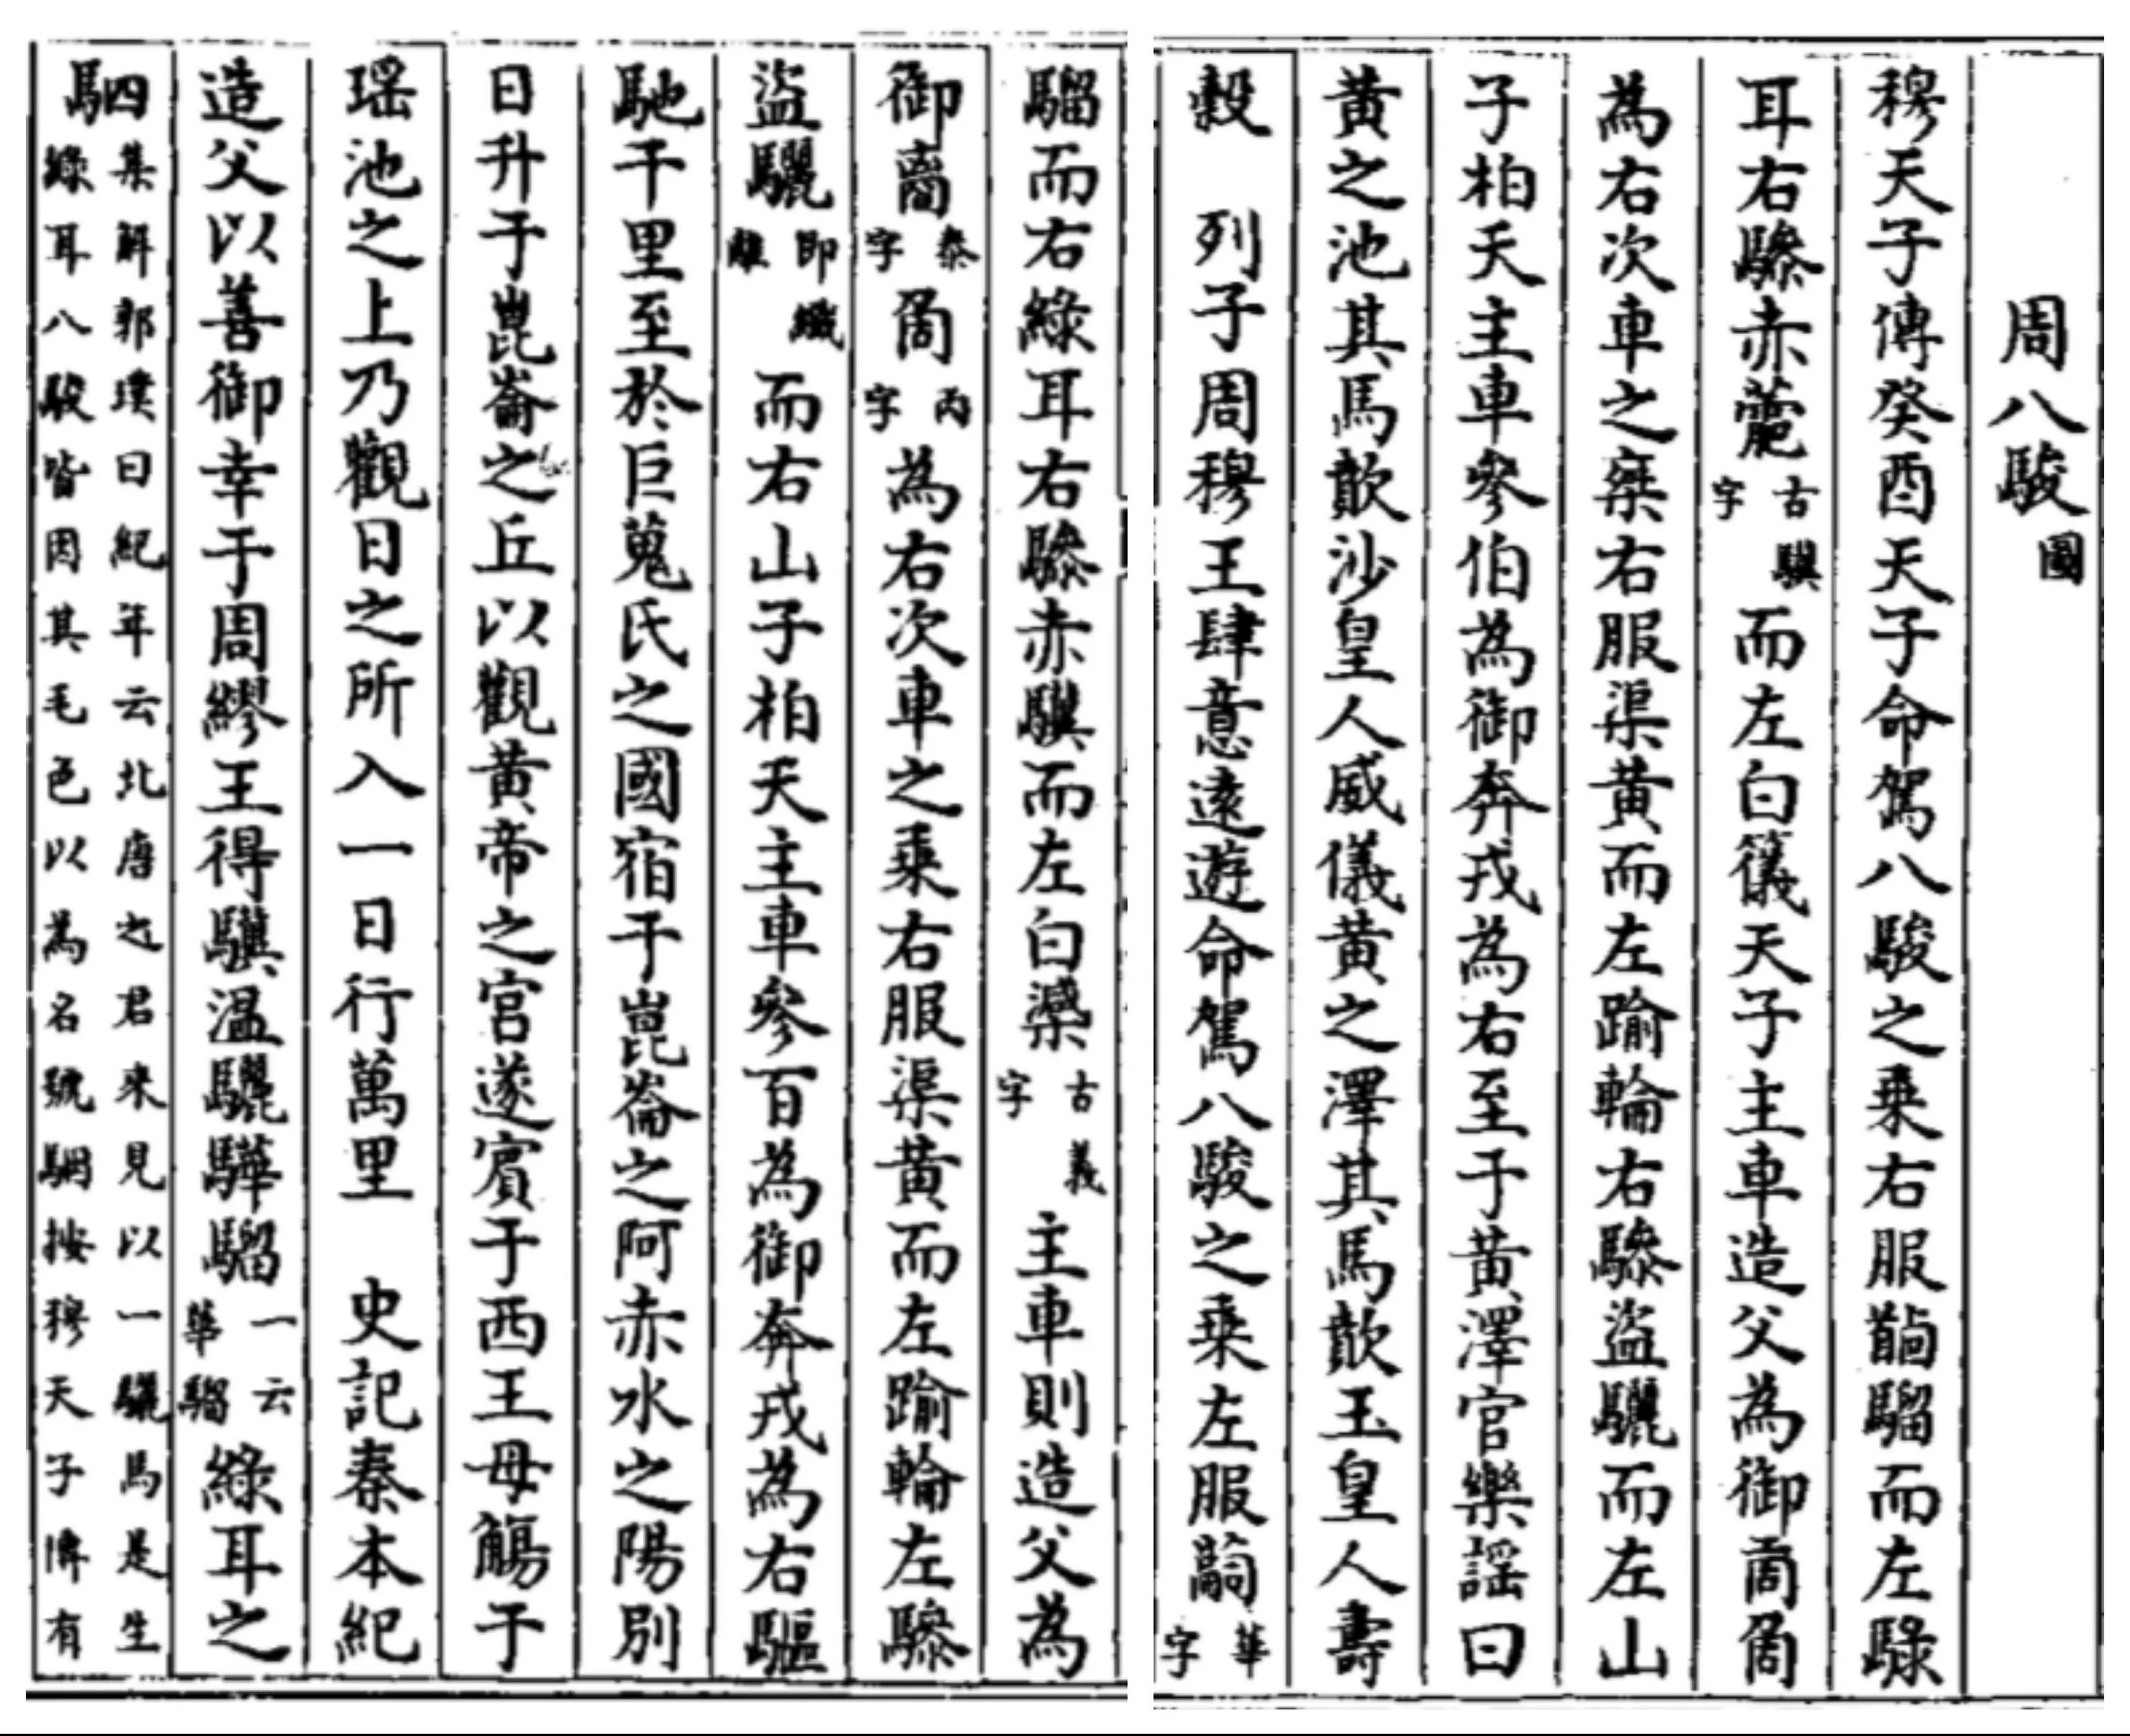 周八駿圖
穆天子傳癸酉天子命駕八駿之乗右服騮而左騄
耳右驂赤古驥字而左白天子主車造父為御
為右次車之椉右服渠黄而左踰輪右驂盜驪而左山
子柏夭主車參伯為御奔戎為右至于黄澤官樂謡曰
黄之池其馬歕沙皇人威儀黄之澤其馬歕玉皇人壽
穀　列子周穆王肆意逺遊命駕八駿之乗左服華字
騮而右綠耳右驂赤驥而左白古義字主車則造父為
御泰字丙字為右次車之乗右服渠黄而左踰輪左驂
盜驪即纎離而右山子柏天主車參百為御奔戎為右驅
馳千里至於巨蒐氏之國宿于崑崙之阿赤水之陽別
日升于崑崙之丘以觀黄帝之宫遂賓于西王母觴于
瑶池之上乃觀日之所入一日行萬里　史記秦本紀
造父以善御幸于周繆王得驥温驪驊騮一云華騮綠耳之
駟集解郭璞曰紀年云北唐之君來見以一驪馬是生綠耳八駿皆因其毛色以為名號駰按穆天子傳有